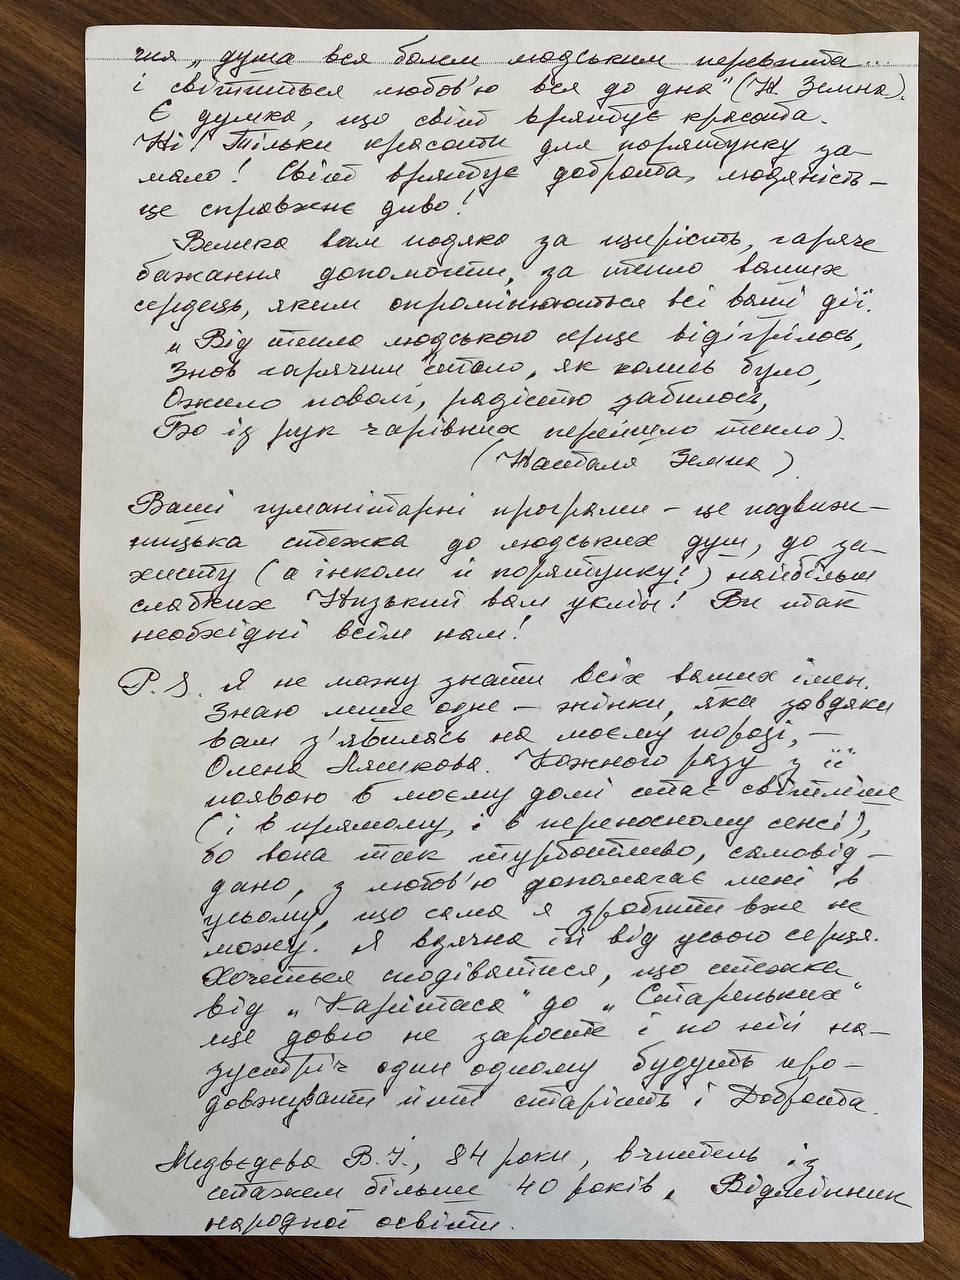 чия „душа вся болем людським перевита...
і світиться любов'ю вся до дна" (Н. Земна).
Є думка, що світ врятує красота.
Ні! Тільки красоти для порятунку за-
мало! Світ врятує доброта, людяність –
це справжнє диво!
Велика вам подяка за щирість, гаряче
бажання допомогти, за тепло ваших
сердець, яким опромінюються всі ваші дії.
„Від тепла людського серце відігрілось,
Знов гарячим стало, як колись було,
Ожило поволі, радістю забилось,
Бо із рук чарівних перейшло тепло).
(Наталя Земна)
Ваші гуманітарні програми – це подвиж-
ницька стежка до людських душ, до за-
хисту (а інколи й порятунку!) найбільш
слабких Низький вам уклін! Ви так
необхідні всім нам!
P.S. Я не можу знати всіх ваших імен.
Знаю лише одне – жінки, яка завдяки
вам з'явилась на моєму порозі, –
Олена Ляшкова. Кожного разу з її
появою в моєму домі стає світліше
(і в прямому, і в переносному сенсі),
бо вона так турботливо, самовід-
дано, з любов'ю допомагає мені в
усьому, що сама я зробити вже не
можу. Я вдячна їй від усього серця.
Хочеться сподіватися, що стежка
від „Карітаса" до „Стареньких"
ще довго не заросте і по ній на-
зустріч один одному будуть про-
довжувати йти старість і Доброта.
Медвєдєва В.І., 84 роки, вчитель із
стажем більше 40 років, Відмінник
народної освіти.